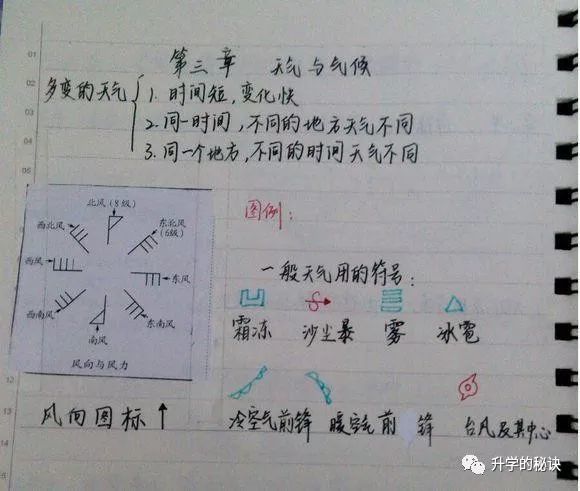 第三章 天气与气候
多变的天气
1. 时间短,变化快
2. 同一时间,不同的地方天气不同
3. 同一个地方,不同的时间天气不同
北风(8级)
西北风
东北风
(6级)
西风
东风
西南风
东南风
南风
风向与风力
风向图标↑
图例:
一般天气用的符号:
霜冻 沙尘暴 雾 冰雹
冷空气前锋 暖空气前锋 台风及其中心
升学的秘诀
01
02
03
04
05
12
13
14